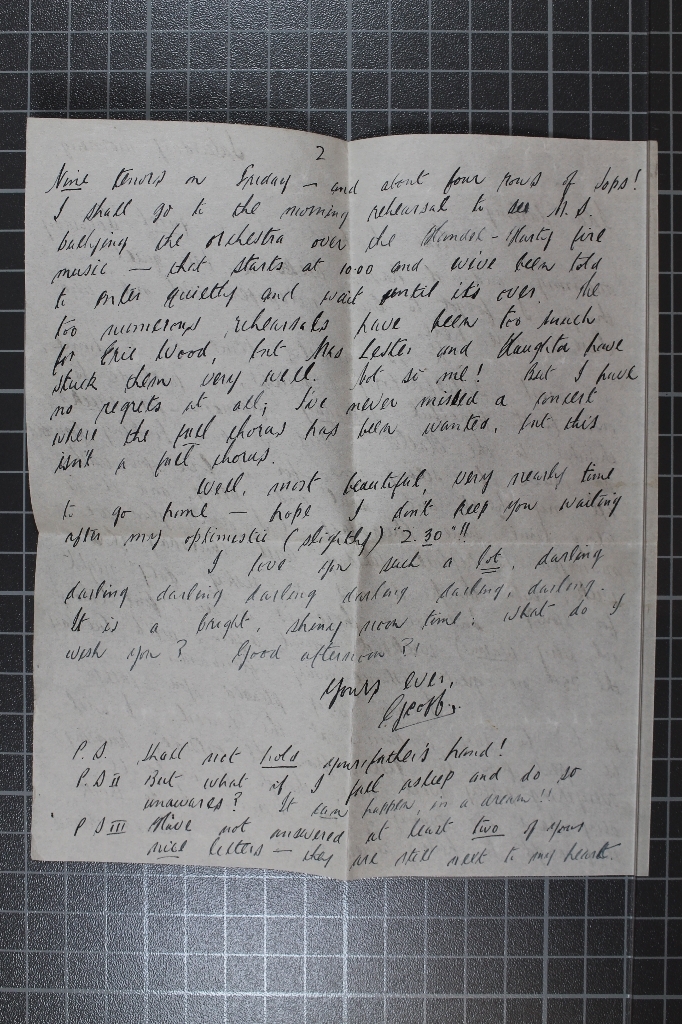 2
Nine tenors on Friday — and about four rows of sops!
I shall go to the morning rehearsal to see M.S.
bullying the orchestra over the Handel-Harty fire
music — that starts at 10.00 and we've been told
to enter quietly and wait until it's over. The
too numerous rehearsals have been too much
for Eric Wood, but Mrs Lester and daughter have
stuck them very well. Not so me! But I have
no regrets at all; I've never missed a concert
where the full chorus has been wanted, but this
isn't a full chorus.
Well, most beautiful, very nearly time
to go home — hope I don't keep you waiting
after my optimistic (slightly) "2.30"!!
I love you such a lot, darling
darling darling darling darling darling, darling.
It is a bright, shiny noon time: what do I
wish you? Good afternoon?!
Yours ever,
Geoff.
P.S. Shall not hold your father's hand!
P.S II But what if I fall asleep and do so
unawares? It can happen, in a dream!!
P S III Have not answered at least two of your
nice letters — they are still next to my heart.